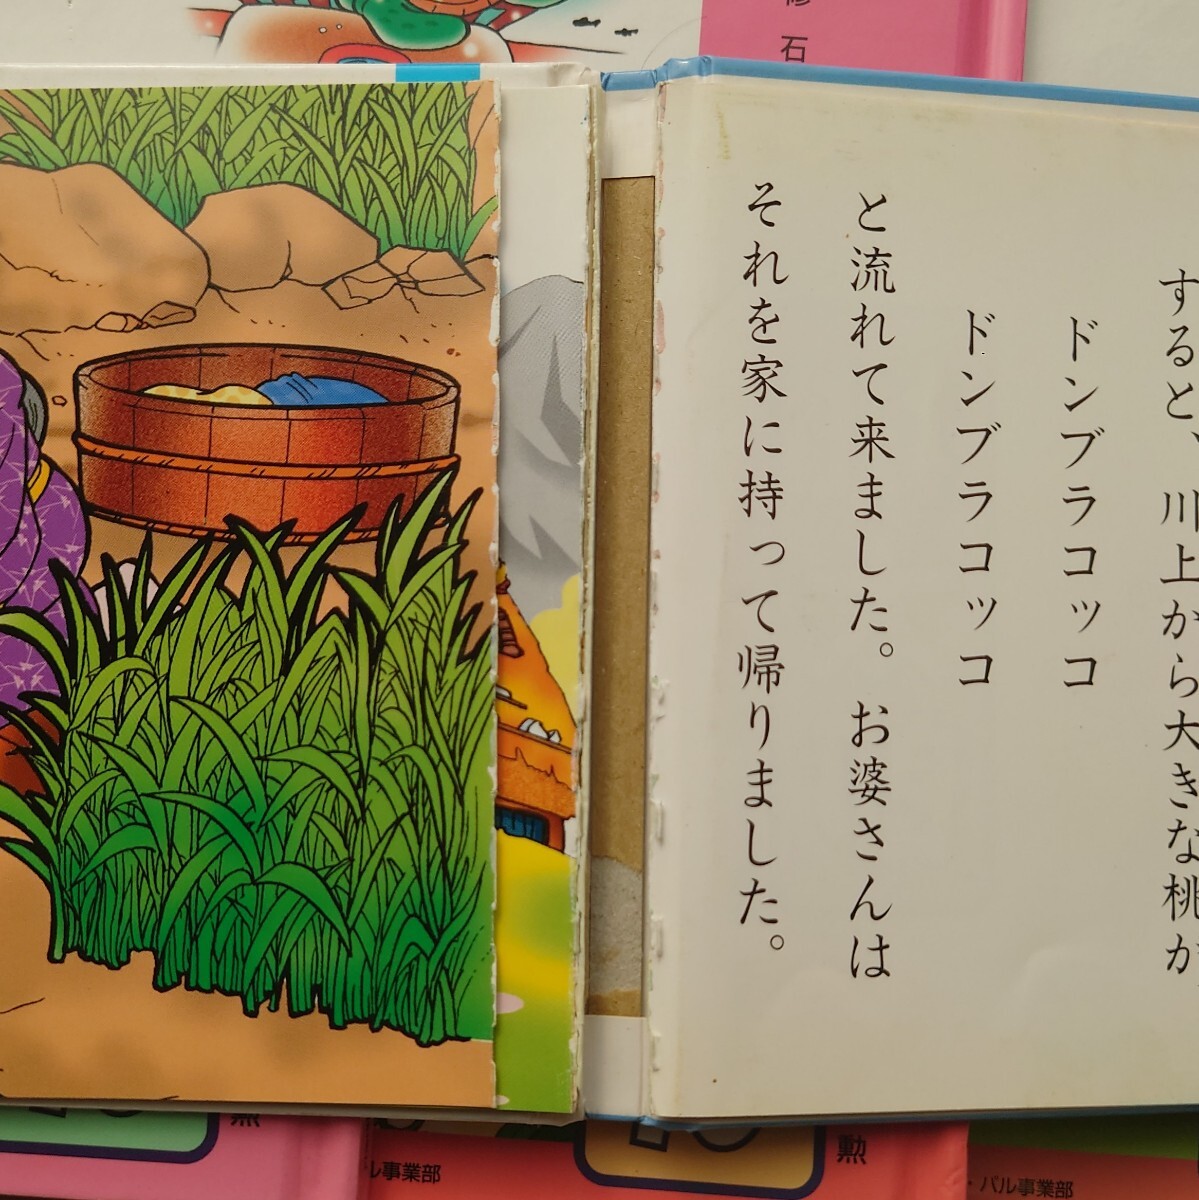 すると、川上から大きな桃が
ドンブラコッコ
ドンブラコッコ
と流れて来ました。お婆さんは
それを家に持って帰りました。
修 石
勲
ル事業部
勲
・パル事業部